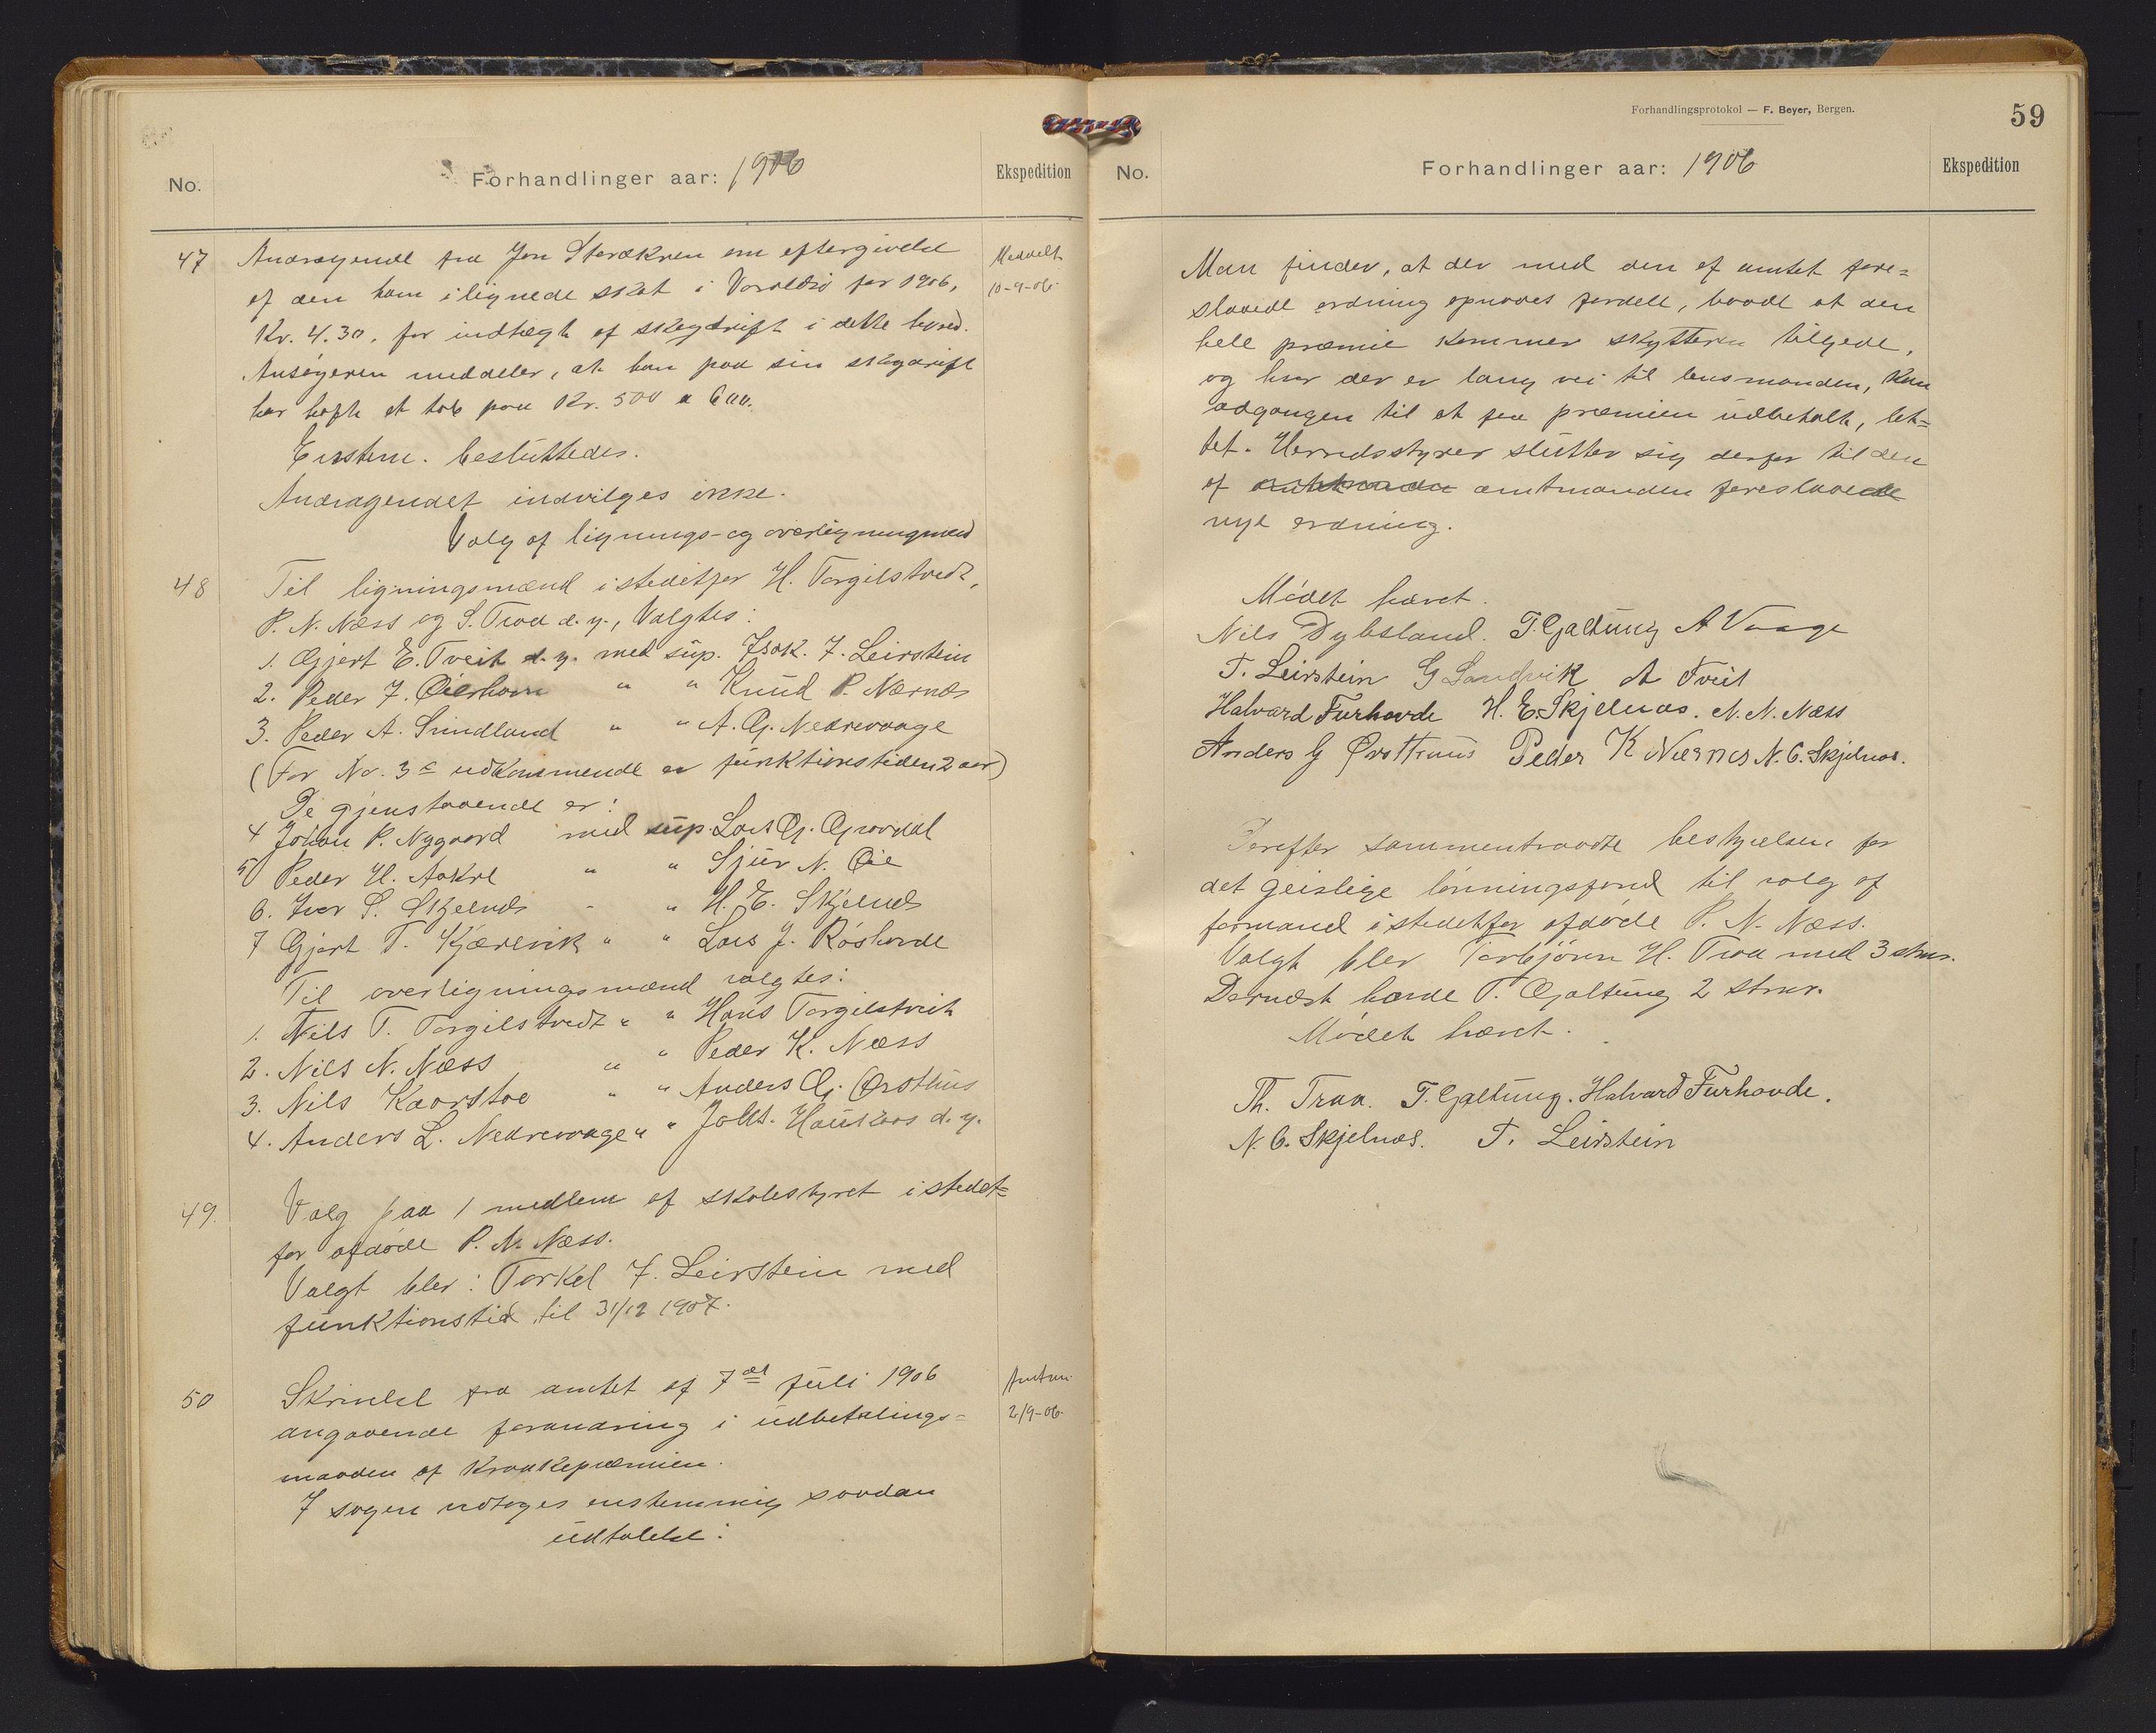 No. Forhandlinger aar: 1906 Ekspedition
47 Andragende fra Jon Storækren om eftergivelse
af den ham ilignede skat i Varaldsö for 1906,
Kr. 4.30, for indtægt af skogdrift i dette herred.
Ansögeren meddeler, at han paa sin skogdrift
har havt et tab paa Kr. 500 a 600.
Meddelt
10-9-06.
Enstem. besluttedes.
Andragendet indvilges ikke.
Valg af lignings- og overligningmænd
48 Til ligningsmænd istedetfor H. Torgilstvedt,
P. N. Næss og S. Traa d. y., Valgtes:
1. Gjert E. Tveit d. y. med sup. Isak. J. Leirstein
2. Peder J. Öierhavn " " Knud P. Nærnæs
3. Peder A. Sundland " " A. Gj. Nedrevaage
(For No. 3s vedkommende er funktionstiden 2 aar)
De gjenstaaende er:
4 Johan P. Nygaard med sup. Lars Gj. Gravdal
5 Peder H. Aakre " " Sjur N. Öie
6. Iver S. Skjelnæs " " H. E. Skjelnæs
7 Gjert T. Kjærevik " " Lars J. Röshovde
Til overligningsmænd valgtes:
1. Nils T. Torgilstvedt " " Hans Torgilstveit
2. Nils N. Næss " " Peder K. Næss
3. Nils Kaarstoe " " Anders Gj. Örsthus
4. Anders L. Nedrevaage " " Johs. Haukaas d. y.
49. Valg paa 1 medlem af skolestyret istedet=
for afdöde P. N. Næss.
Valgt blev: Torkel J. Leirstein med
funktionstid til 31/12 1907.
50 Skrivelse fra amtet af 7de Juli 1906
angaaende forandring i udbetalings=
maaden af Kraakepræmien.
Amtm.
2/9-06.
I sagen vedtoges enstemmig saadan
udtalelse:
Forhandlingsprotokol — F. Beyer, Bergen.
59
No. Forhandlinger aar: 1906 Ekspedition
Man finder, at der med den af amtet fore=
slaaede ordning opnaaes fordele, baade at den
hele præmie kommer skytteren tilgode,
og hvor der er lang vei til lensmanden, kan
adgangen til at faa præmien udbetalt, let=
tet. Herredsstyret slutter sig derfor til den
af amtmanden amtmanden foreslaaede
nye ordning.
Mödet hævet.
Nils Dybsland. T. Galtung A Vaage
T. Leirstein G Sandvik A Tveit
Halvard Furhovde H. E. Skjelnæs. N. N. Næss
Anders G Örsthuus Peder K Nærnes N. C. Skjelnæs.
Derefter sammentraadte bestyrelsen for
det geislige lönningsfond til valg af
formand istedetfor afdöde P. N. Næss.
Valgt blev Torbjörn H. Traa med 3 stmr.
Dernæst havde T. Galtung 2 stmr.
Mödet hævet.
Th. Traa. T. Galtung. Halvard Furhovde.
N. C. Skjelnæs. T. Leirstein